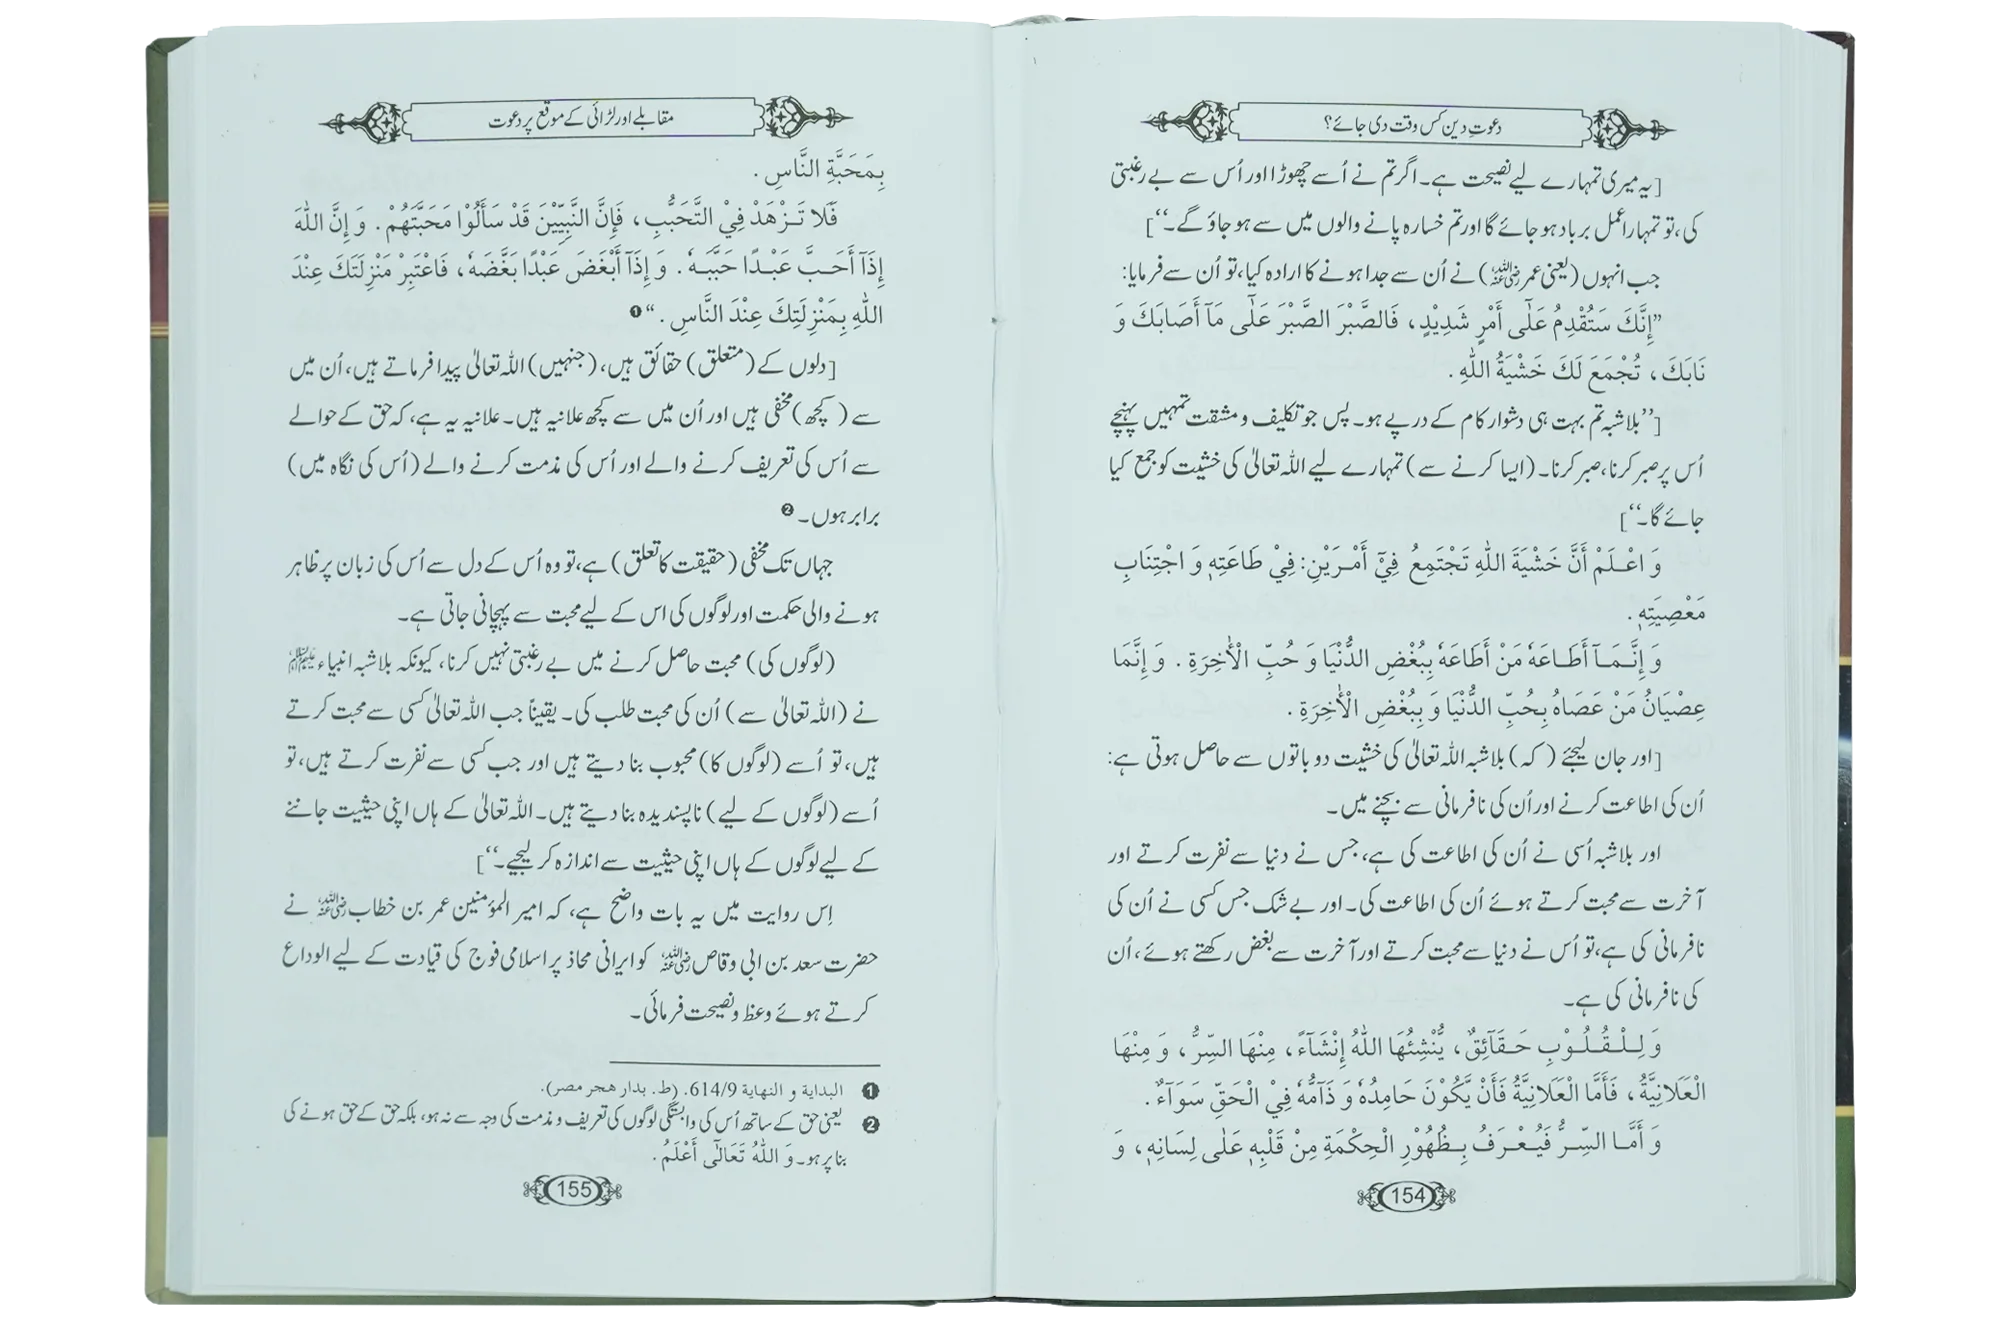 دعوتِ دین کس وقت دی جائے؟
[یہ میری تمہارے لیے نصیحت ہے۔ اگر تم نے اُسے چھوڑا اور اُس سے بے رغبتی
کی، تو تمہارا عمل برباد ہوجائے گا اور تم خسارہ پانے والوں میں سے ہوجاؤ گے۔‘‘]
جب انہوں (یعنی عمر رضی اللہ عنہ) نے اُن سے جدا ہونے کا ارادہ کیا، تو اُن سے فرمایا:
”إِنَّكَ سَتُقْدِمُ عَلٰٓى أَمْرٍ شَدِيْدٍ، فَالصَّبْرَ الصَّبْرَ عَلٰٓى مَآ أَصَابَكَ وَ
نَابَكَ، تُجْمَعَ لَكَ خَشْيَةُ اللّٰهِ.
[’’بلاشبہ تم بہت ہی دشوار کام کے درپے ہو۔ پس جو تکلیف و مشقت تمہیں پہنچے
اُس پر صبر کرنا، صبر کرنا۔ (ایسا کرنے سے) تمہارے لیے اللہ تعالیٰ کی خشیت کو جمع کیا
جائے گا۔‘‘]
وَ اعْـلَمْ أَنَّ خَشْيَةَ اللّٰهِ تَجْتَمِعُ فِيْٓ أَمْـرَيْنِ: فِيْ طَاعَتِهٖ وَ اجْتِنَابِ
مَعْصِيَتِهٖ.
وَ إِنَّـمَـآ أَطَـاعَهٗ مَنْ أَطَاعَهٗ بِبُغْضِ الدُّنْيَا وَ حُبِّ الْأٰخِرَةِ. وَ إِنَّمَا
عِصْيَانُ مَنْ عَصَاهُ بِحُبِّ الدُّنْيَا وَ بِبُغْضِ الْأٰخِرَةِ.
[اور جان لیجئے (کہ) بلاشبہ اللہ تعالیٰ کی خشیت دو باتوں سے حاصل ہوتی ہے:
اُن کی اطاعت کرنے اور اُن کی نافرمانی سے بچنے میں۔
اور بلاشبہ اُسی نے اُن کی اطاعت کی ہے، جس نے دنیا سے نفرت کرتے اور
آخرت سے محبت کرتے ہوئے اُن کی اطاعت کی۔ اور بے شک جس کسی نے اُن کی
نافرمانی کی ہے، تو اُس نے دنیا سے محبت کرتے اور آخرت سے بغض رکھتے ہوئے، اُن
کی نافرمانی کی ہے۔
وَ لِـلْـقُـلُـوْبِ حَـقَآئِقٌ، يُّنْشِئُهَا اللّٰهُ إِنْشَآءً، مِنْهَا السِّرُّ، وَ مِنْهَا
الْعَلَانِيَّةُ، فَأَمَّا الْعَلَانِيَّةُ فَأَنْ يَّكُوْنَ حَامِدُهٗ وَ ذَآمُّهٗ فِيْ الْحَقِّ سَوَآءٌ.
وَ أَمَّـا السِّـرُّ فَيُـعْـرَفُ بِـظُهُوْرِ الْحِكْمَةِ مِنْ قَلْبِهٖ عَلٰى لِسَانِهٖ، وَ
154
مقابلے اور لڑائی کے موقع پر دعوت
بِمَحَبَّةِ النَّاسِ.
فَلَا تَـزْهَدْ فِيْ التَّحَبُّبِ، فَإِنَّ النَّبِيِّيْنَ قَدْ سَأَلُوْا مَحَبَّتَهُمْ. وَ إِنَّ اللّٰهَ
إِذَآ أَحَـبَّ عَبْـدًا حَبَّبَـهٗ. وَ إِذَآ أَبْغَضَ عَبْدًا بَغَّضَهٗ، فَاعْتَبِرْ مَنْزِلَتَكَ عِنْدَ
اللّٰهِ بِمَنْزِلَتِكَ عِنْدَ النَّاسِ.“ ❶
[دلوں کے (متعلق) حقائق ہیں، (جنہیں) اللہ تعالیٰ پیدا فرماتے ہیں، اُن میں
سے (کچھ) مخفی ہیں اور اُن میں سے کچھ علانیہ ہیں۔ علانیہ یہ ہے، کہ حق کے حوالے
سے اُس کی تعریف کرنے والے اور اُس کی مذمت کرنے والے (اُس کی نگاہ میں)
برابر ہوں۔ ❷
جہاں تک مخفی (حقیقت کا تعلق) ہے، تو وہ اُس کے دل سے اُس کی زبان پر ظاہر
ہونے والی حکمت اور لوگوں کی اس کے لیے محبت سے پہچانی جاتی ہے۔
(لوگوں کی) محبت حاصل کرنے میں بے رغبتی نہیں کرنا، کیونکہ بلاشبہ انبیاء علیہم السلام
نے (اللہ تعالیٰ سے) اُن کی محبت طلب کی۔ یقیناً جب اللہ تعالیٰ کسی سے محبت کرتے
ہیں، تو اُسے (لوگوں کا) محبوب بنا دیتے ہیں اور جب کسی سے نفرت کرتے ہیں، تو
اُسے (لوگوں کے لیے) ناپسندیدہ بنا دیتے ہیں۔ اللہ تعالیٰ کے ہاں اپنی حیثیت جاننے
کے لیے لوگوں کے ہاں اپنی حیثیت سے اندازہ کر لیجیے۔‘‘]
اِس روایت میں یہ بات واضح ہے، کہ امیر المؤمنین عمر بن خطاب رضی اللہ عنہ نے
حضرت سعد بن ابی وقاص رضی اللہ عنہ کو ایرانی محاذ پر اسلامی فوج کی قیادت کے لیے الوداع
کرتے ہوئے وعظ و نصیحت فرمائی۔
❶ البداية و النهاية 614/9. (ط. بدار هجر مصر).
❷ یعنی حق کے ساتھ اُس کی وابستگی لوگوں کی تعریف و مذمت کی وجہ سے نہ ہو، بلکہ حق کے حق ہونے کی
بنا پر ہو۔ وَ اللّٰهُ تَعَالٰٓى أَعْلَمُ.
155